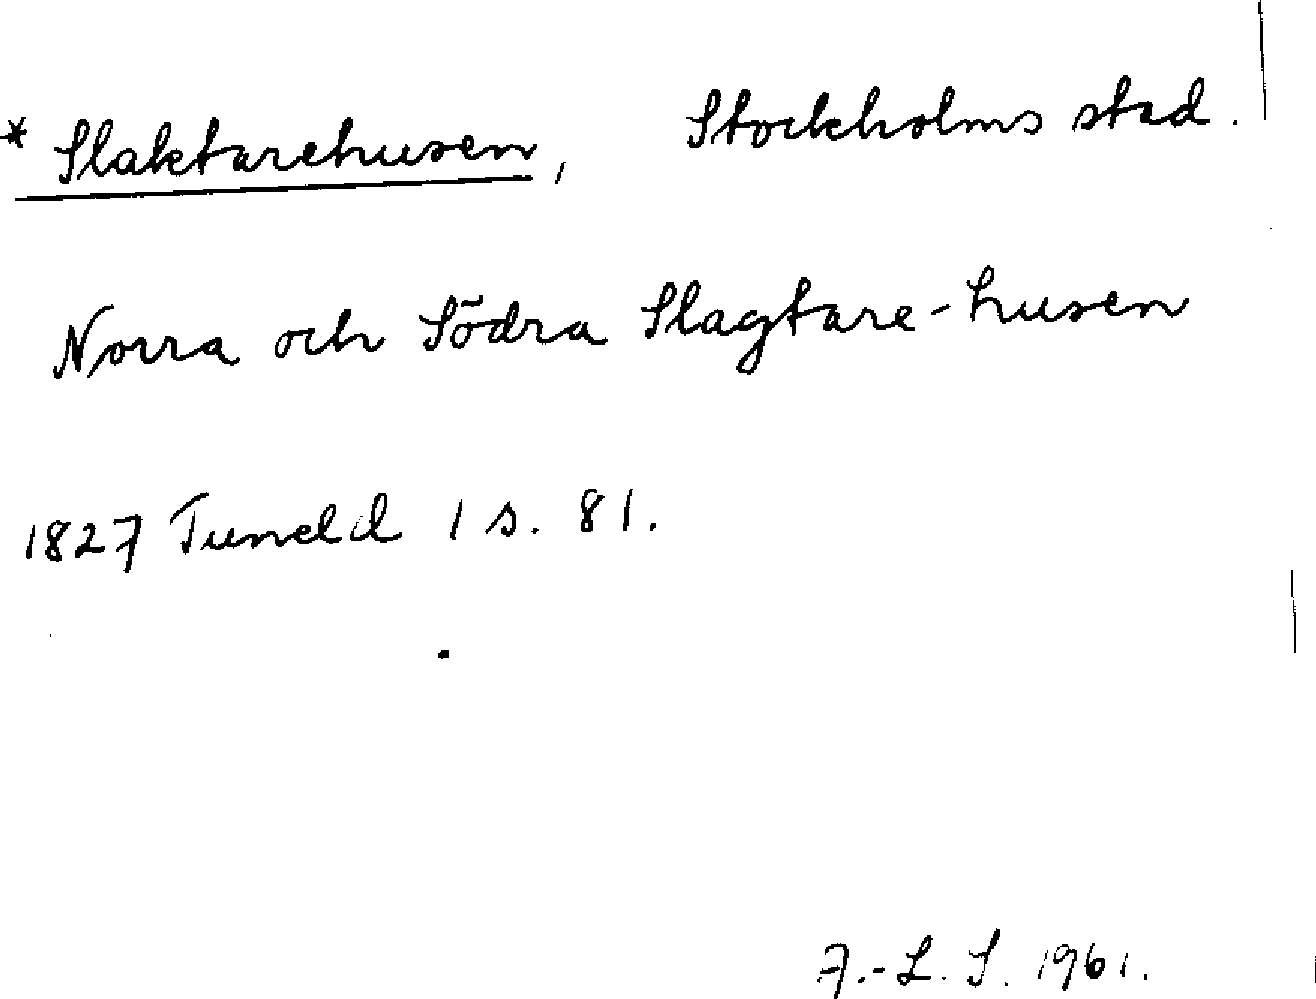 * Slaktarehusen, Stockholms stad.
Norra och Södra Slagtare-husen
1827 Tuneld 1 s. 81.
A.-L. S. 1961.